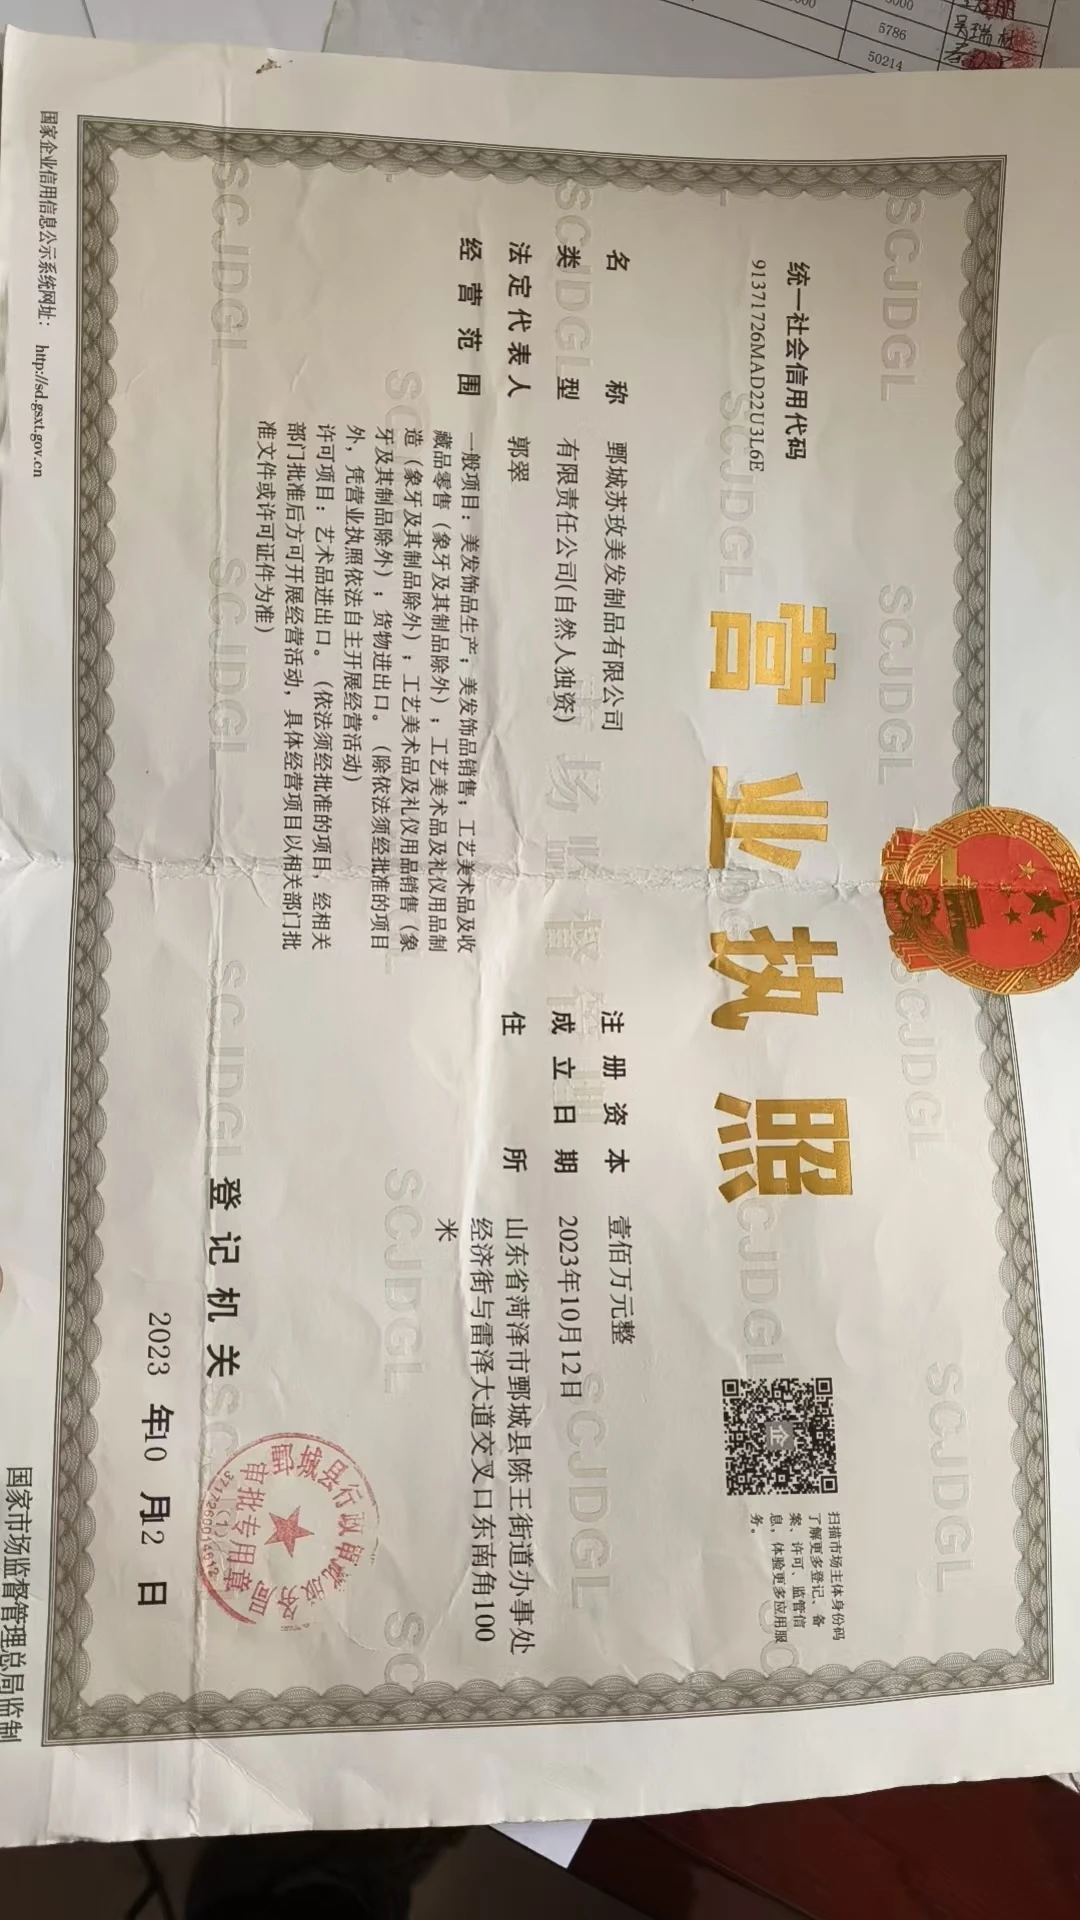 营业执照
统一社会信用代码
91371726MAD22U3L6E
扫描市场主体身份码
了解更多登记、备
案、许可、监管信
息，体验更多应用服
务。
名称 鄄城苏玫美发制品有限公司
类型 有限责任公司(自然人独资)
法定代表人 郭翠
经营范围 一般项目：美发饰品生产；美发饰品销售；工艺美术品及收
藏品零售（象牙及其制品除外）；工艺美术品及礼仪用品制
造（象牙及其制品除外）；工艺美术品及礼仪用品销售（象
牙及其制品除外）；货物进出口。（除依法须经批准的项目
外，凭营业执照依法自主开展经营活动）
许可项目：艺术品进出口。（依法须经批准的项目，经相关
部门批准后方可开展经营活动，具体经营项目以相关部门批
准文件或许可证件为准）
注册资本 壹佰万元整
成立日期 2023年10月12日
住所 山东省菏泽市鄄城县陈王街道办事处
经济街与雷泽大道交叉口东南角100
米
登记机关
鄄城县行政审批服务局
审批专用章
(1)
2023 年10 月12 日
国家企业信用信息公示系统网址： http://sd.gsxt.gov.cn
国家市场监督管理总局监制
SCJDGL
市场监督管理
5786
50214